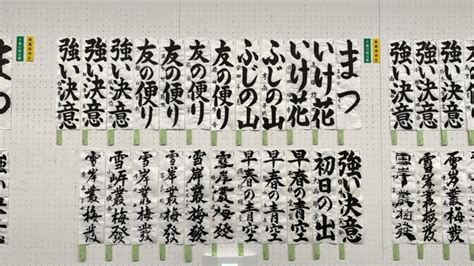 強い決意
強い決意
強い決意
まつ
いけ花
いけ花
ふじの山
ふじの山
友の便り
友の便り
友の便り
友の便り
強い決意
強い決意
強い決意
まつ
雪岸叢梅發
雪岸叢梅發
雪岸叢梅發
強い決意
初日の出
早春の青空
早春の青空
早春の青空
雪岸叢梅發
雪岸叢梅發
雪岸叢梅發
雪岸叢梅發
雪岸叢梅發
雪岸叢梅發